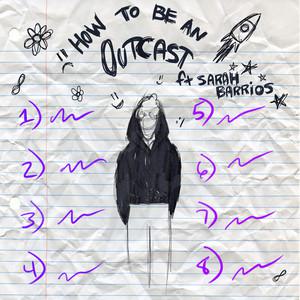 HOW TO BE AN
OUTCAST
ft SARAH
BARRIOS
1)
2)
3)
4)
5)
6)
7)
8)